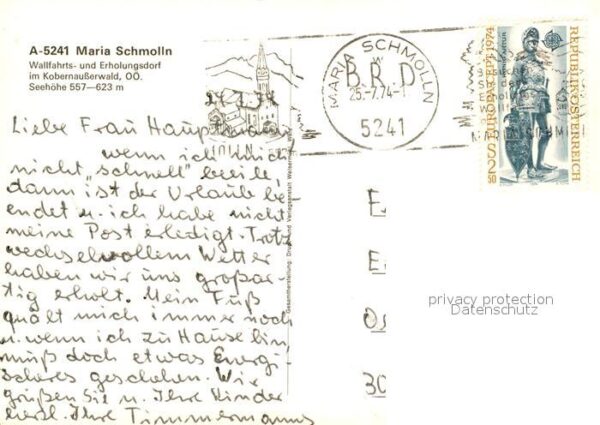 A-5241 Maria Schmolln
Wallfahrts- und Erholungsdorf
im Kobernaußerwald, OÖ.
Seehöhe 557—623 m
MARIA SCHMOLLN
25.-7.74-1
5241
B.R.D
REPUBLIK ÖSTERREICH
EUROPA CEPT 1974
S 2 50
24.7.74
Liebe Frau Hauptmann
wenn ich mich
nicht "schnell" beeile,
dann ist der Urlaub be-
endet u. ich habe nicht
meine Post erledigt. Trotz
wechselvollem Wetter
haben wir uns großar-
tig erholt. Mein Fuß
quält mich immer noch
u. wenn ich zu Hause bin
muß doch etwas Energi-
scheres geschehen. Wir
grüßen Sie u. Ihre Kinder
herzl. Ihre Timmermanns
Gesamtherstellung: Druck- und Verlagsanstalt
E
E
Os
30
privacy protection
Datenschutz